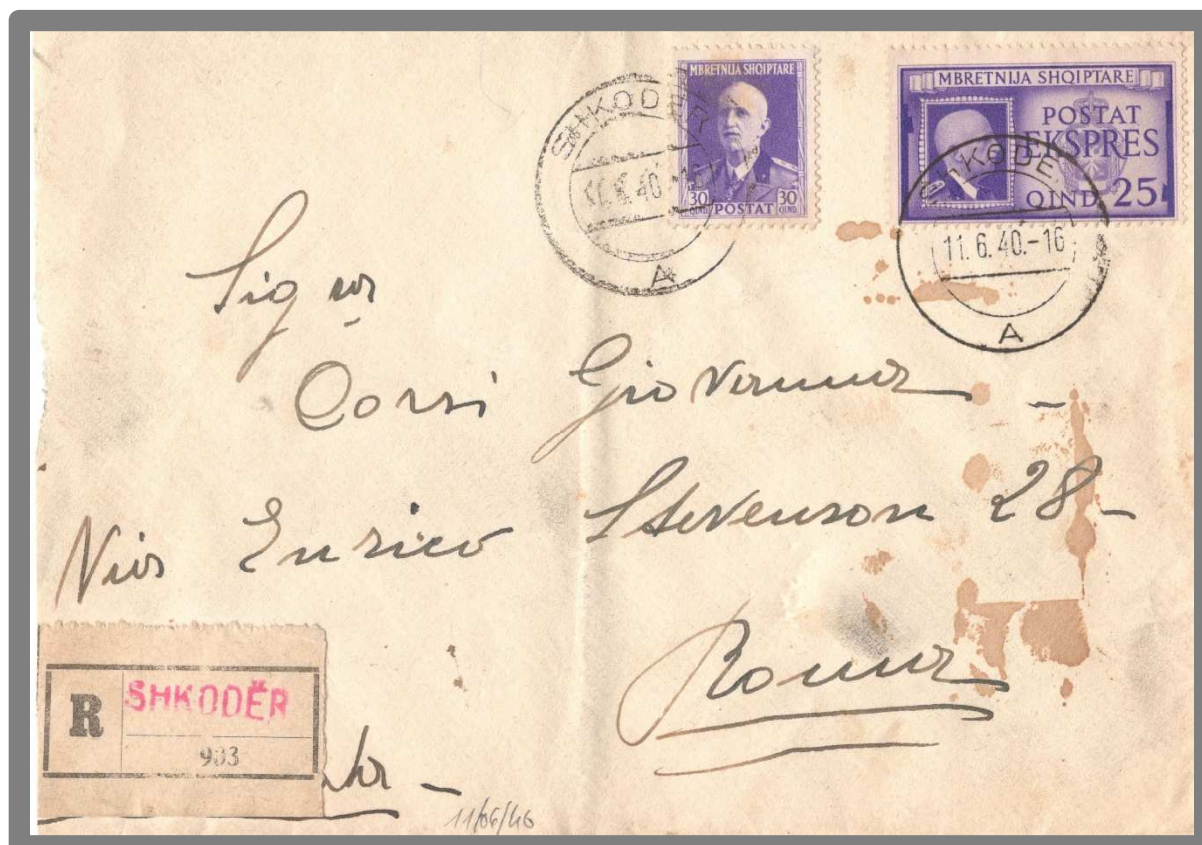 MBRETNIJA SHQIPTARE
30 QIND. POSTAT 30 QIND.
MBRETNIJA SHQIPTARE
POSTAT
EKSPRES
QIND. 25
SHKODËR
11.6.40.-16
A
SHKODËR
11.6.40.-16
A
Corsi Giovanna -
Via Enrico Stevenson 28-
Roma
R SHKODËR
903
11/06/40